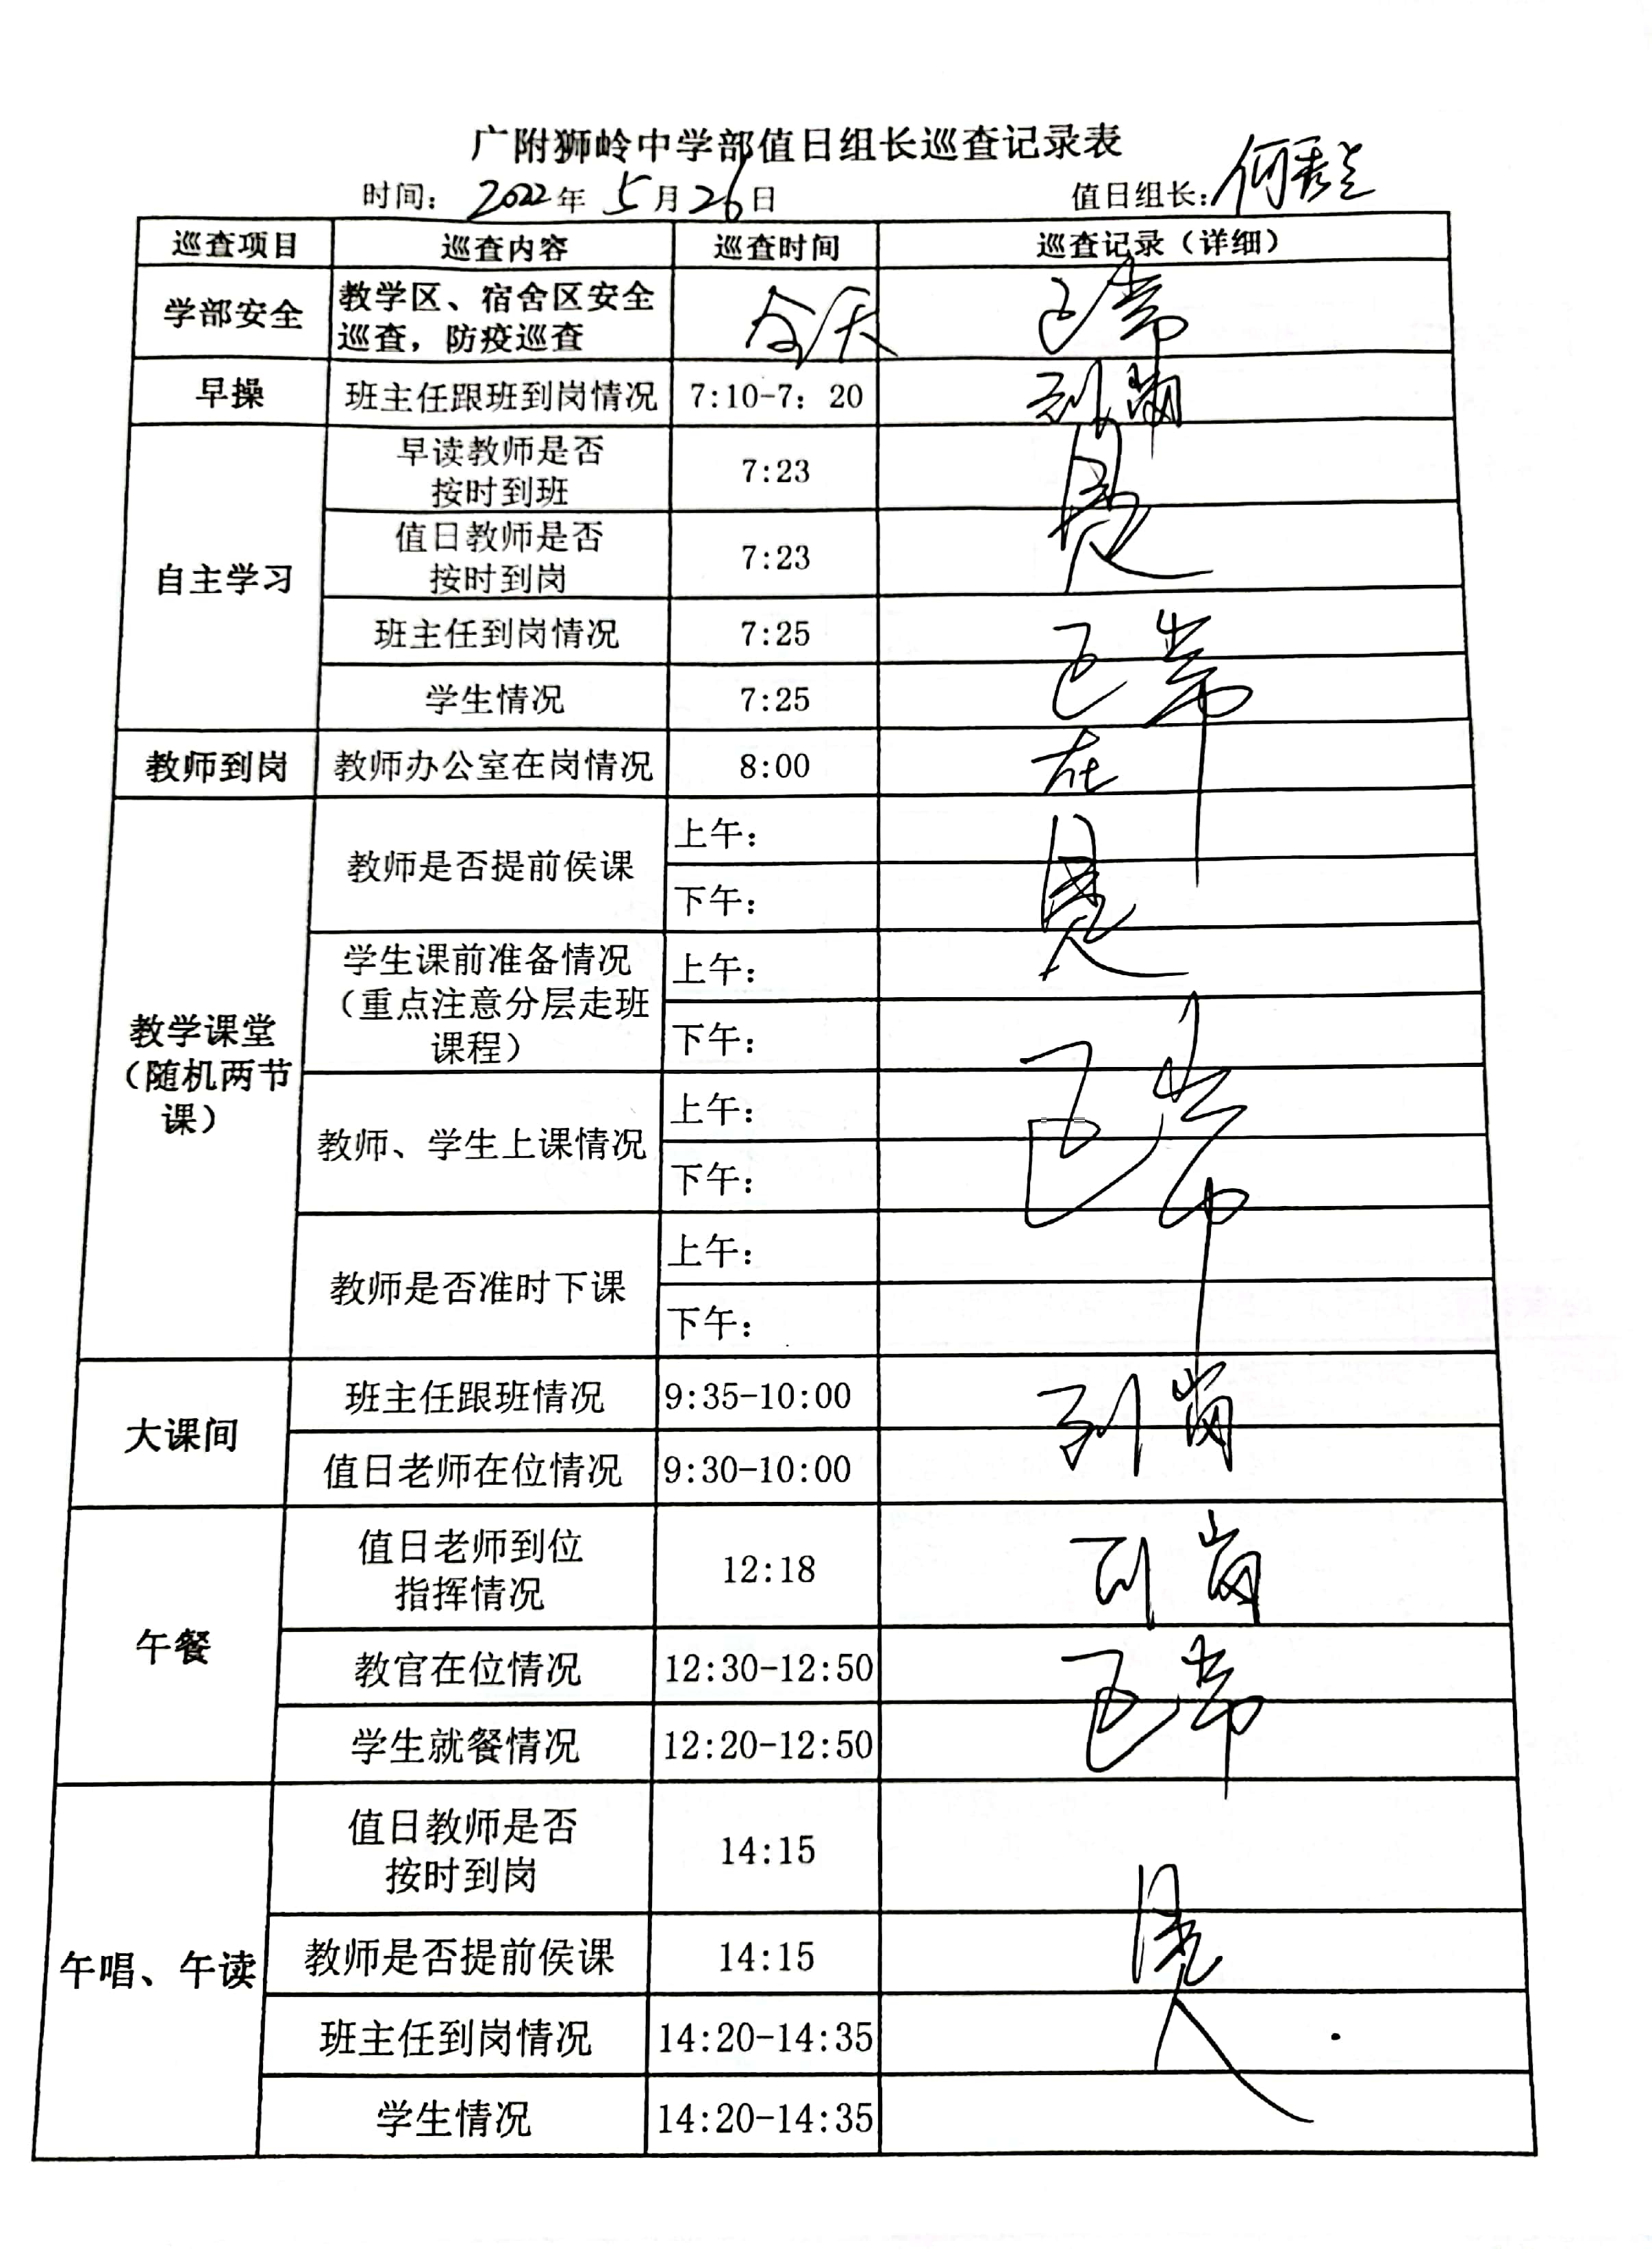 广附狮岭中学部值日组长巡查记录表
时间： 2022年 5月26日 值日组长：何
巡查项目 巡查内容 巡查时间 巡查记录（详细）
学部安全 教学区、宿舍区安全 全天 正常
巡查，防疫巡查
早操 班主任跟班到岗情况 7:10-7：20 到岗
自主学习 早读教师是否
按时到班 7:23 是
值日教师是否
按时到岗 7:23
班主任到岗情况 7:25 正常
学生情况 7:25
教师到岗 教师办公室在岗情况 8:00 在
教学课堂
（随机两节
课）
教师是否提前侯课 上午：
下午： 是
学生课前准备情况
（重点注意分层走班
课程） 上午：
下午：
教师、学生上课情况 上午： 正常
下午：
教师是否准时下课 上午：
下午：
大课间 班主任跟班情况 9:35-10:00 到岗
值日老师在位情况 9:30-10:00
午餐 值日老师到位
指挥情况 12:18 到岗
教官在位情况 12:30-12:50 正常
学生就餐情况 12:20-12:50
午唱、午读 值日教师是否
按时到岗 14:15
教师是否提前侯课 14:15 是
班主任到岗情况 14:20-14:35
学生情况 14:20-14:35